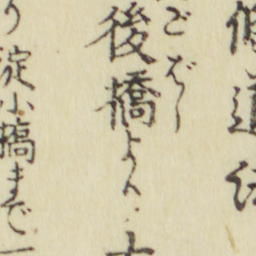 道
ごばし
後橋より
り淀小橋まで一